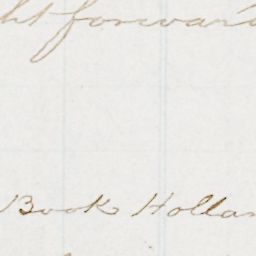 ht forward
Book Hollan